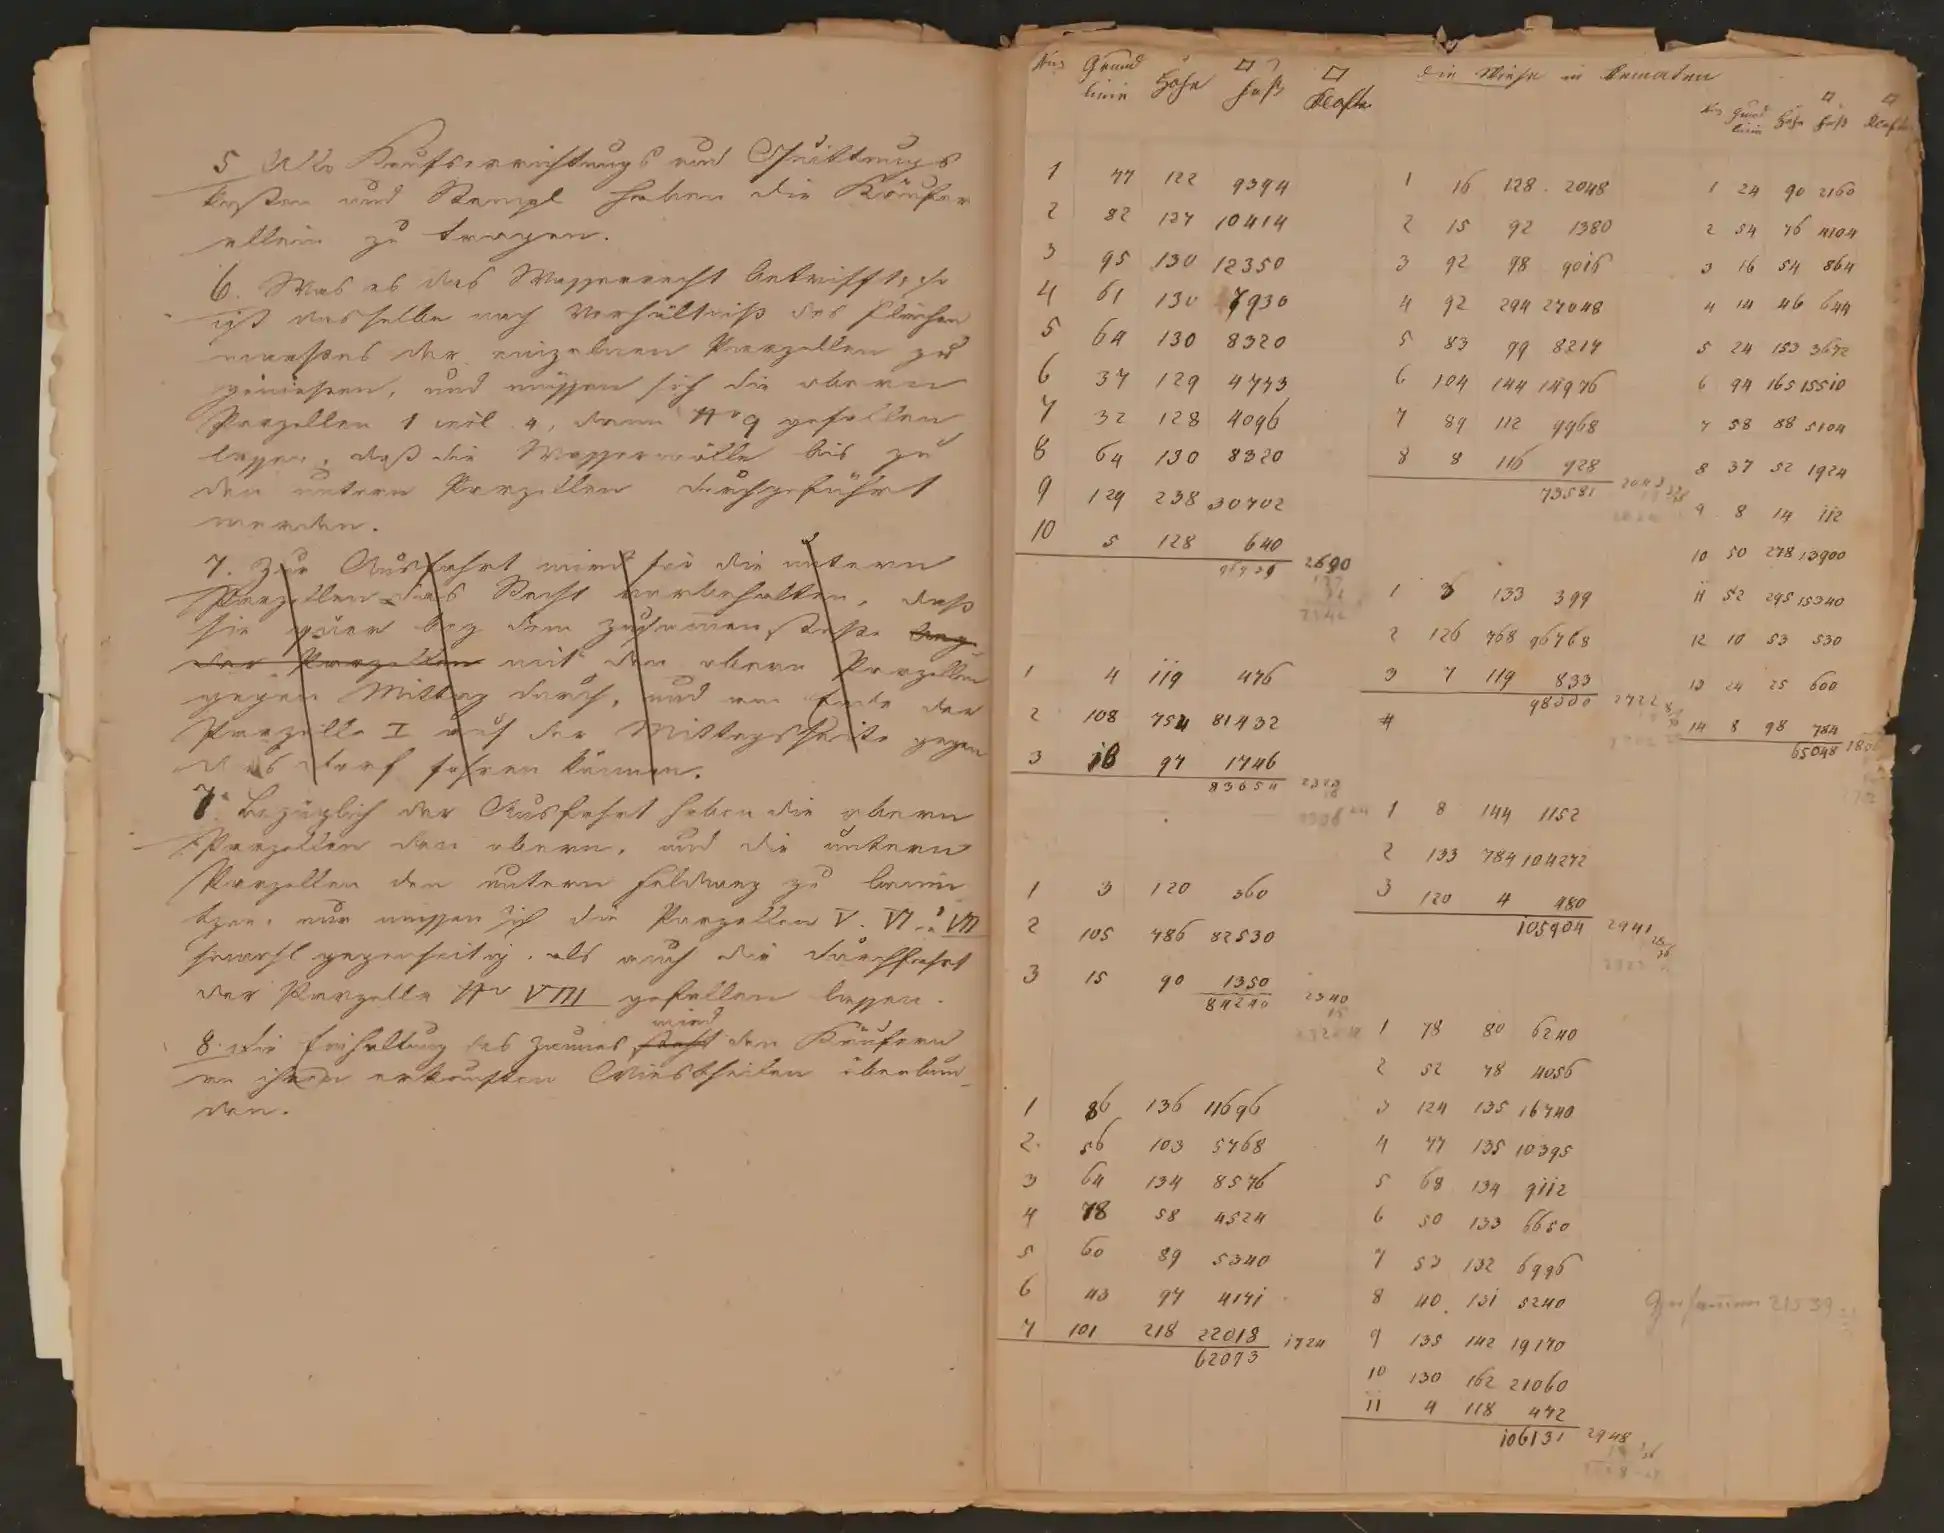 5. Alle Kaufserrichtungs und Quittungs
kosten und Stempl haben die Käufer
allein zu tragen.
6. Was es das Wasserrecht betrifft, so
ist dasselbe nach Verhältniß des Flächen
maaßes der einzelnen Parzellen zu
geniessen, und müssen sich die obern
Parzellen 1 incl. 4, dann No 9 gefallen
lassen, daß die Wasserwälle bis zu
den untern Parzellen durchgeführt
werden.
7. Zur Ausfahrt wird für die untern
Parzellen das Recht vorbehalten, daß
sie quer bey dem Zusammenstoße bey
der Parzellen mit den obern Parzellen
gegen Mittag durch, und am Ende der
Parzelle I auf der Mittagsseite gegen
das Dorf fahren können.
7. Bezüglich der Ausfahrt haben die obern
Parzellen den obern, und die untern
Parzellen den untern Feldweg zu benü
tzen, nur müssen sich die Parzellen V. VI. u. VII
sowohl gegenseitig, als auch die Durchfahrt
der Parzelle No VIII gefallen lassen.
wird
8. Die Einhaltung des Zaunes steht den Käufern
an ihren erkauften Wiestheilen überbun
den.
Grund linie Höhe □ Fuß □ Klafter
1 77 122 9394
2 82 127 10414
3 95 130 12350
4 61 130 7930
5 64 130 8320
6 37 129 4773
7 32 128 4096
8 64 130 8320
9 129 238 30702
10 5 128 640
2690
1 4 119 476
2 108 754 81432
3 18 97 1746
83654 2323
1 3 120 360
2 105 786 82530
3 15 90 1350
84240 2340
1 86 136 11696
2 56 103 5768
3 64 134 8576
4 78 58 4524
5 60 89 5340
6 43 97 4171
7 101 218 22018 1724
62093
Die Wiese in Kematen
1 16 128 2048
2 15 92 1380
3 92 98 9016
4 92 294 27048
5 83 99 8217
6 104 144 14976
7 89 112 9968
8 8 116 928
73581 2043
1 3 133 399
2 126 768 96768
3 7 119 833
98000 2722
1 8 144 1152
2 133 784 104272
3 120 4 480
105904 2941
1 78 80 6240
2 52 78 4056
3 124 135 16740
4 77 135 10395
5 68 134 9112
6 50 133 6650
7 53 132 6996
8 40 131 5240
9 135 142 19170
10 130 162 21060
11 4 118 472
106131 2948
Grund linie Höhe □ Fuß □ Klafter
1 24 90 2160
2 54 76 4104
3 16 54 864
4 14 46 644
5 24 153 3672
6 94 165 15510
7 58 88 5104
8 37 52 1924
9 8 14 112
10 50 278 13900
11 52 295 15340
12 10 53 530
13 24 25 600
14 8 98 784
65048
Zusammen 21539